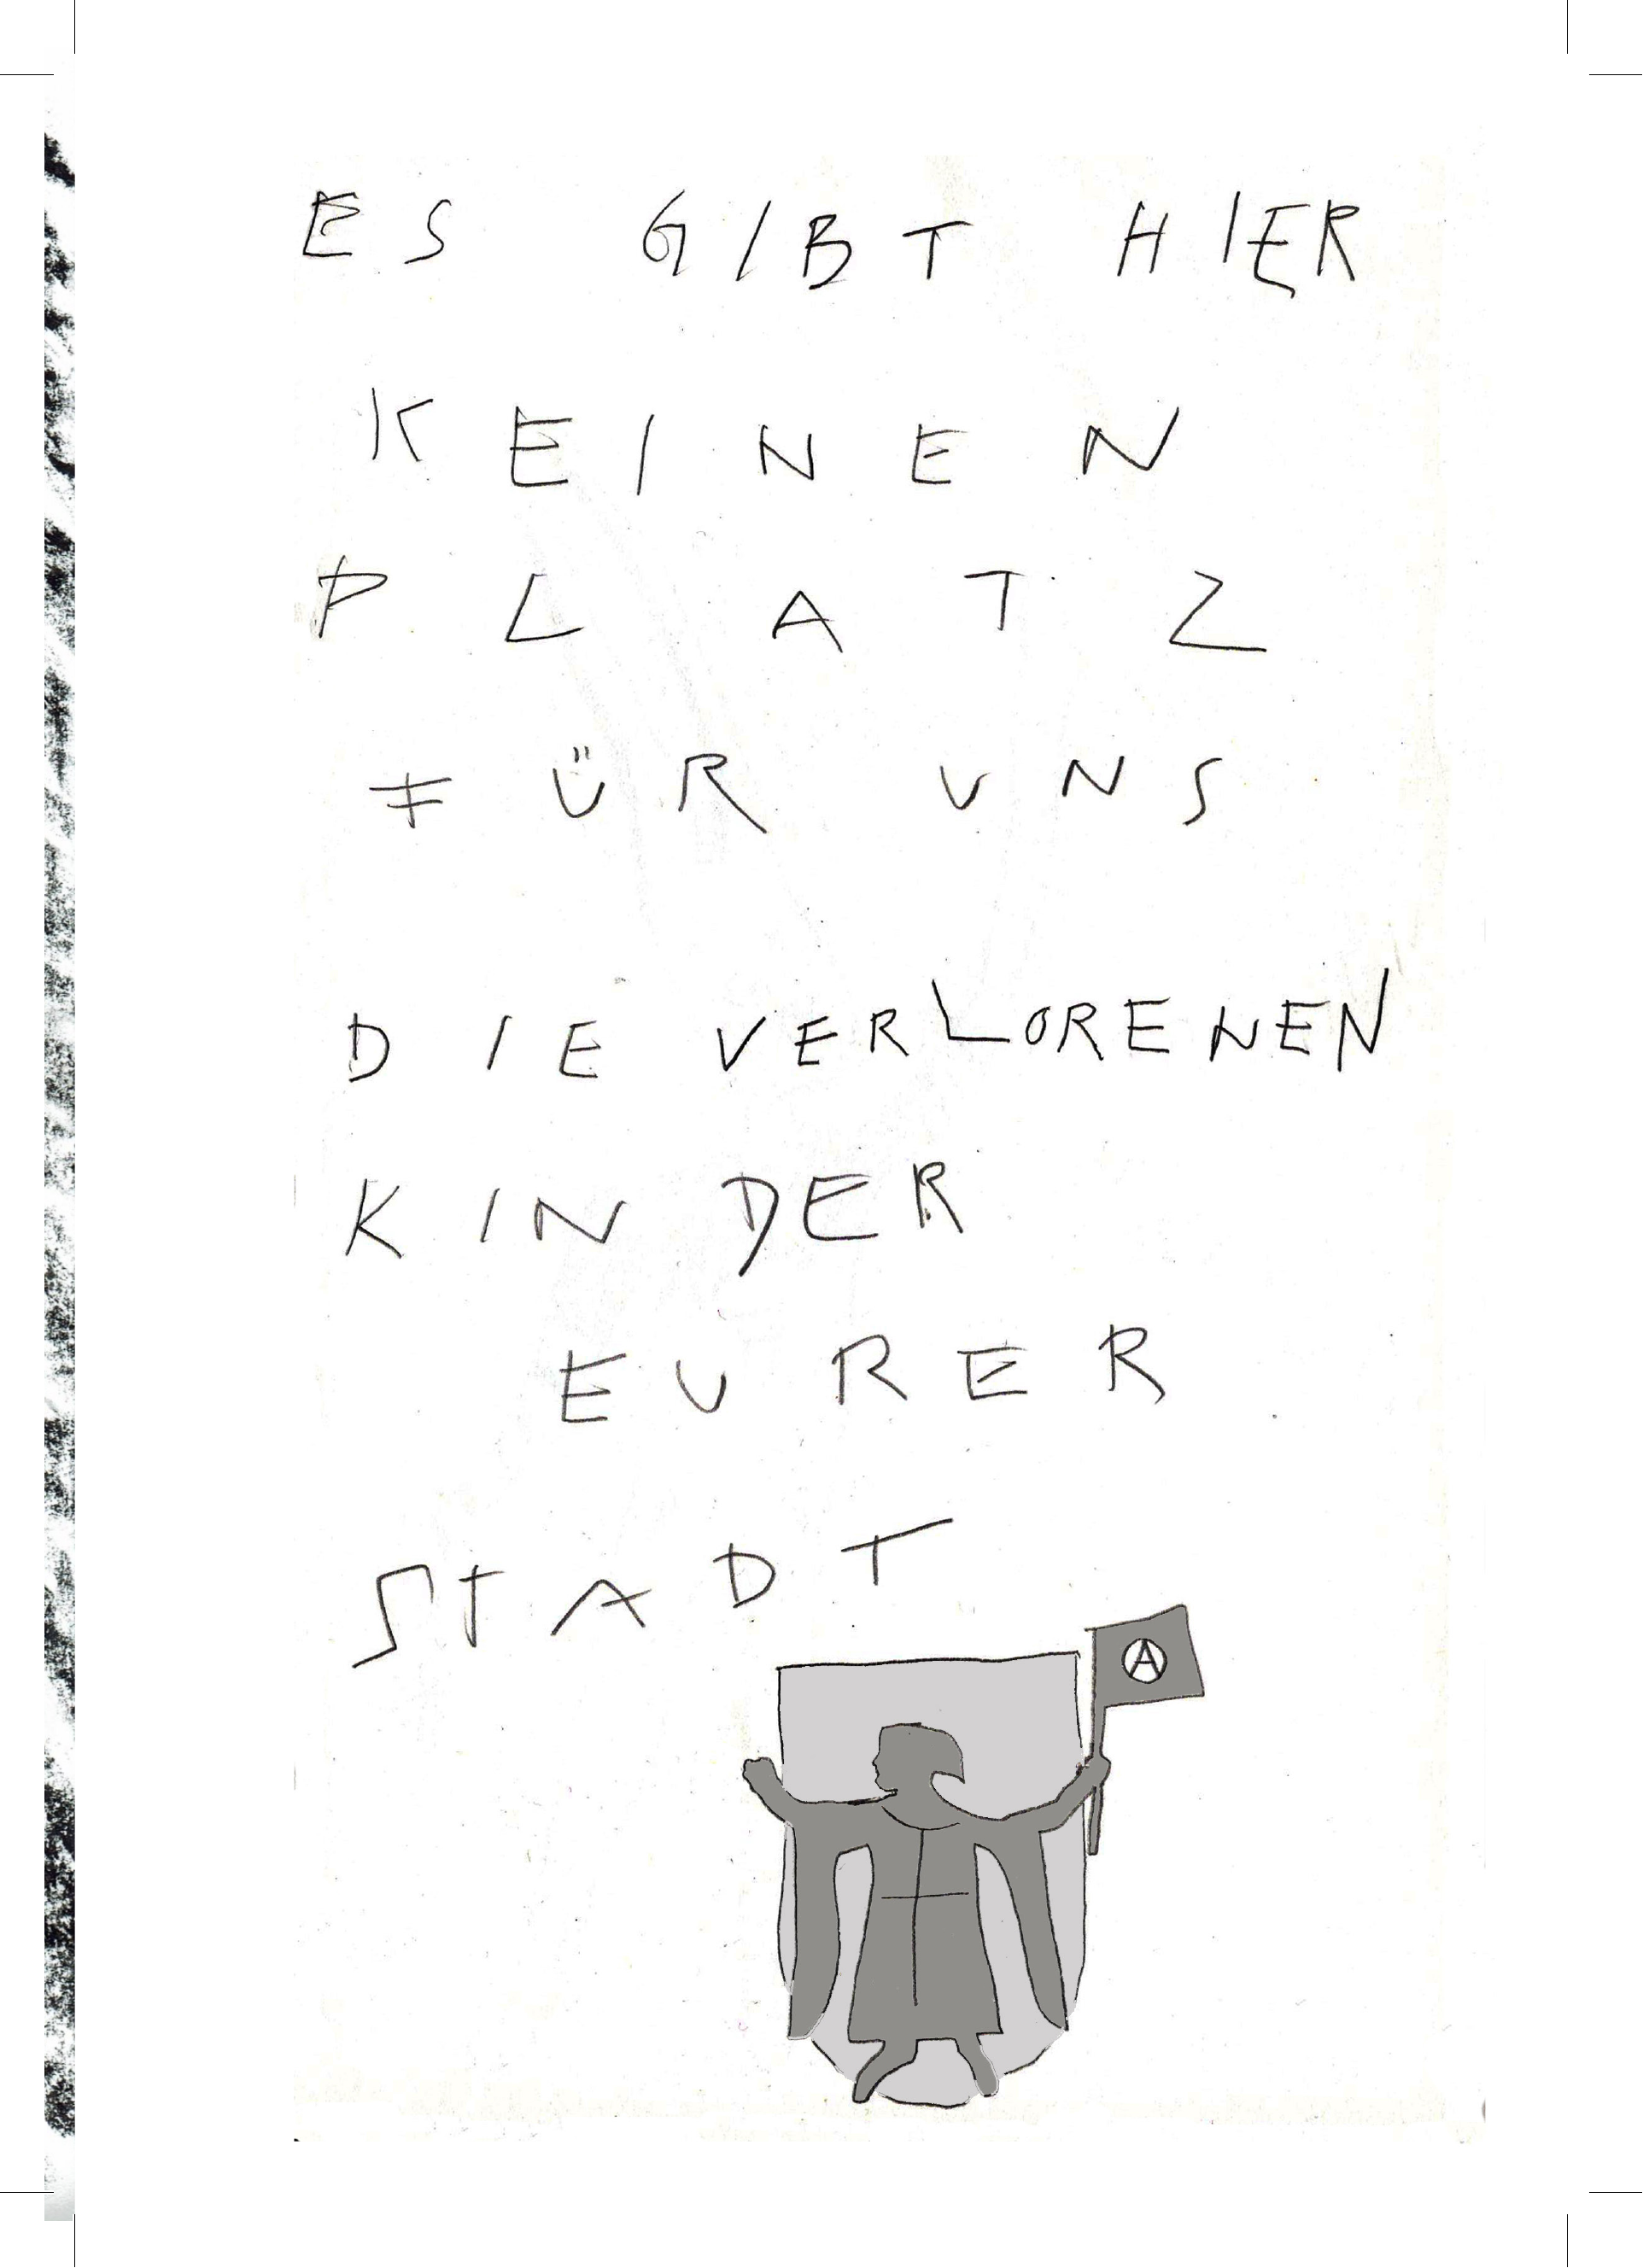 ES GIBT HIER
KEINEN
PLATZ
FÜR UNS
DIE VERLORENEN
KINDER
EURER
STADT
A